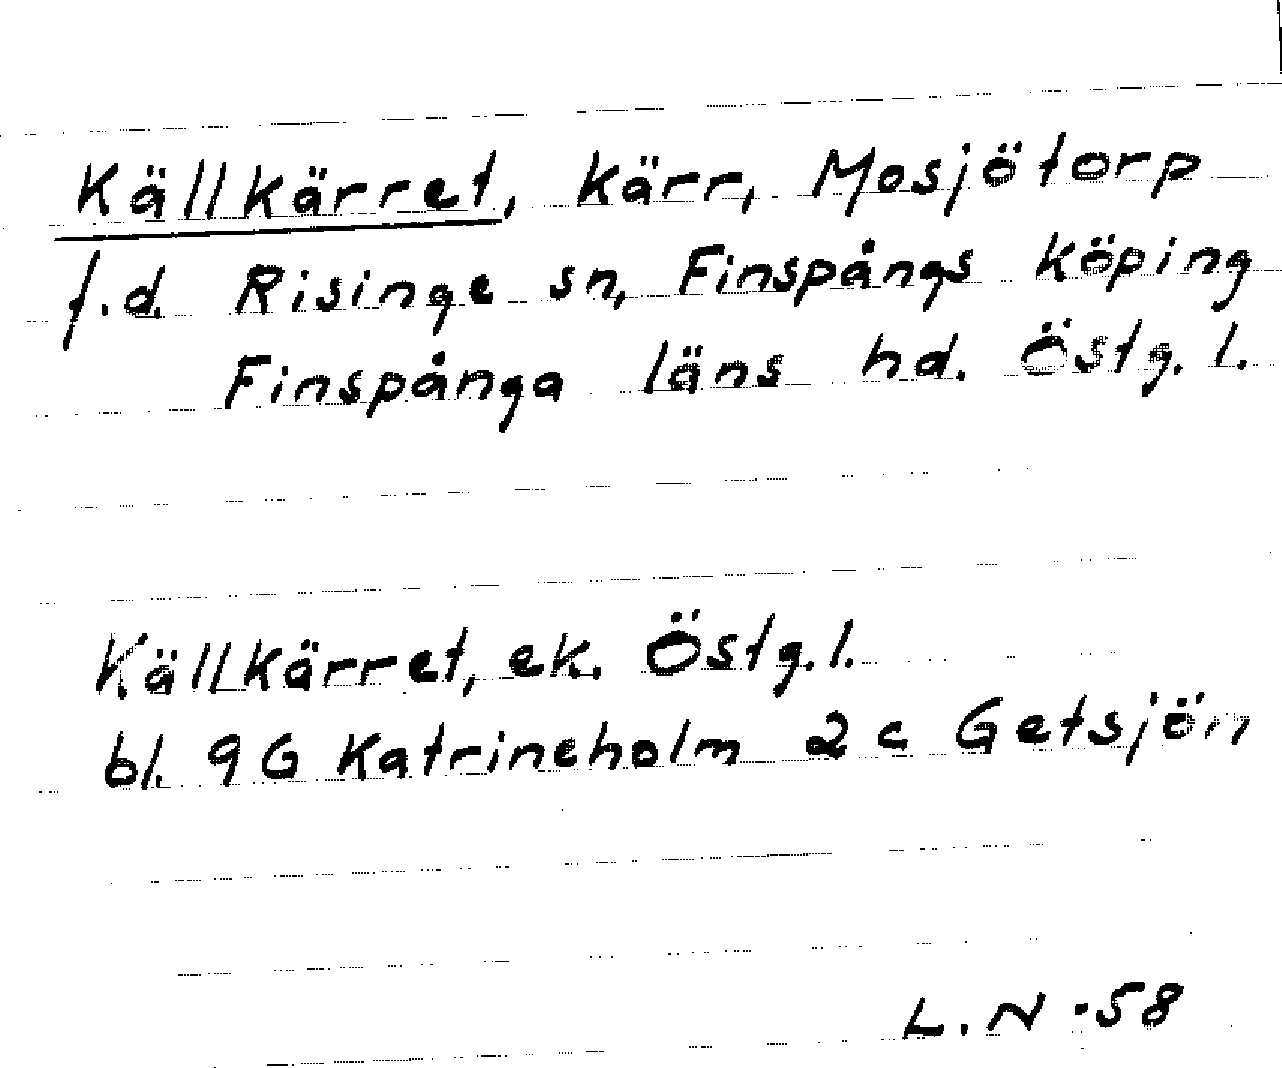 Källkärret, kärr, Mosjötorp
f.d. Risinge sn, Finspångs köping
Finspånga läns hd. Östg. l.
Källkärret, ek. Östg. l.
bl. 9G Katrineholm 2 c Getsjön
L. N. 58